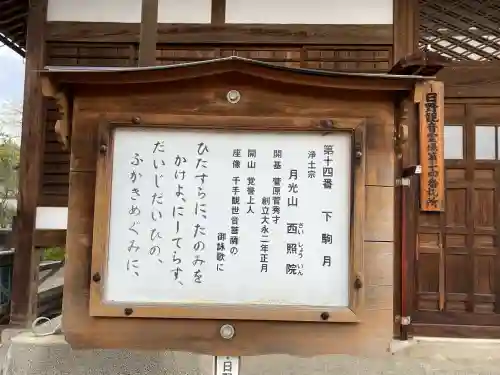 第十四番 下駒月
浄土宗
月光山 西照院
さい しょう いん
開基 菅原秀才
創立大永二年正月
開山 覚誉上人
座像 千手観世音菩薩の
御詠歌に
ひたすらに、たのみを
かけよ、にーてらす、
だいじだいひの、
ふかきめぐみに、
日野観音霊場第十四番札所
日野